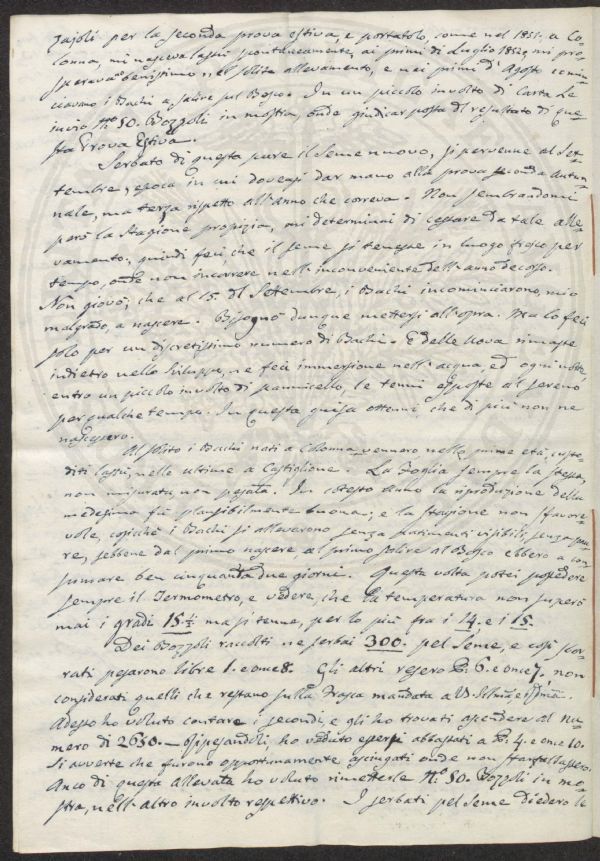 Jajoli per la seconda prova estiva, e portatolo, come nel 1851. a Co-
lonna, mi nasceva lassù spontaneamente, ai primi di Luglio 1852, mi pro-
sperava benissimo nel solito allevamento, e nei primi d'Agosto comin-
ciavano i Bachi a salire sul Bosco. In un piccolo involto di Carta le
N.o 50. Bozzoli in mostra, onde giudicar possa del resultato di que-
sta Prova Estiva.
Serbato di questa pure il Seme nuovo, si pervenne al Set-
tembre, epoca in cui doveasi dar mano alla prova seconda Autun-
nale, ma terza rispetto all'anno che correva. Non sembrandomi
però la Stagione propizia, mi determinai di cessare da tale alle-
vamento; quindi feci, che il seme si tenesse in luogo fresco per
tempo, onde non incorrere nell'inconveniente dell'anno decorso.
Non giovò; che al 15. del Settembre, i Bachi incominciarono, mio
malgrado, a nascere. Bisognò dunque mettersi all'opra. Ma lo feci
solo per un discretissimo numero di Bachi. E delle uova rimaste
indietro nello sviluppo, ne feci immersione nell'acqua, ed ogni notte
entro un piccolo involto di pannicello, le tenni esposte al sereno
per qualche tempo. In questa guisa ottenni, che di più non ne
nascessero.
Al solito i Bachi nati a Colonna vennero nelle prime età, custo-
diti lassù, nelle ultime a Castiglione. La Foglia sempre la stessa,
non misurata, non pesata. In cotesto anno la riproduzione della
medesima fu plausibilmente buona; e la stagione non sfavore-
vole, cosicchè i Bachi si allevarono senza patimenti visibili, senza
re, sebbene dal primo nascere al primo salire al Bosco ebbero a con-
sumare ben cinquanta due giorni. Questa volta potei possedere
sempre il Termometro, e vedere, che la temperatura non superò
mai i gradi 15½ ma si tenne, per lo più fra i 14. e i 15.
Dei Bozzoli raccolti ne serbai 300. pel Seme, e così scor-
rati pesarono libre 1. e once 8. Gli altri resero L: 6. e once 7. non
considerati quelli che restano sulla Frasca mandata a VS. Illma.
Adesso ho voluto contare i secondi, e gli ho trovati ascendere al Nu-
mero di 2650. Ripesandoli, ho veduto essersi abbassati a L: 4. e once 10.
Si avverte che furono opportunamente asciugati onde non sfarfallassero.
Anco di questa allevata ho voluto rimetterle N.o 50. Bozzoli in mo-
stra, nell'altro involto respettivo. I serbati pel Seme diedero le